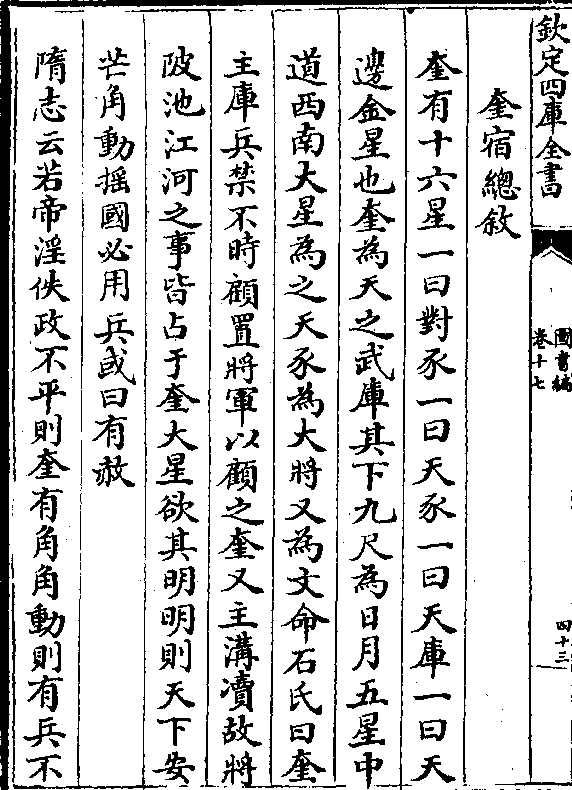 欽定四庫全書
圖書編
卷十七
四十三
奎宿總敘
奎有十六星一曰對豕一曰天豕一曰天庫一曰天
邊金星也奎為天之武庫其下九尺為日月五星中
道西南大星為之天豕為大將又為文命石氏曰奎
主庫兵禁不時顧置將軍以顧之奎又主溝瀆故將
陂池江河之事皆占于奎大星欲其明明則天下安
芒角動搖國必用兵或曰有赦
隋志云若帝淫佚政不平則奎有角角動則有兵不